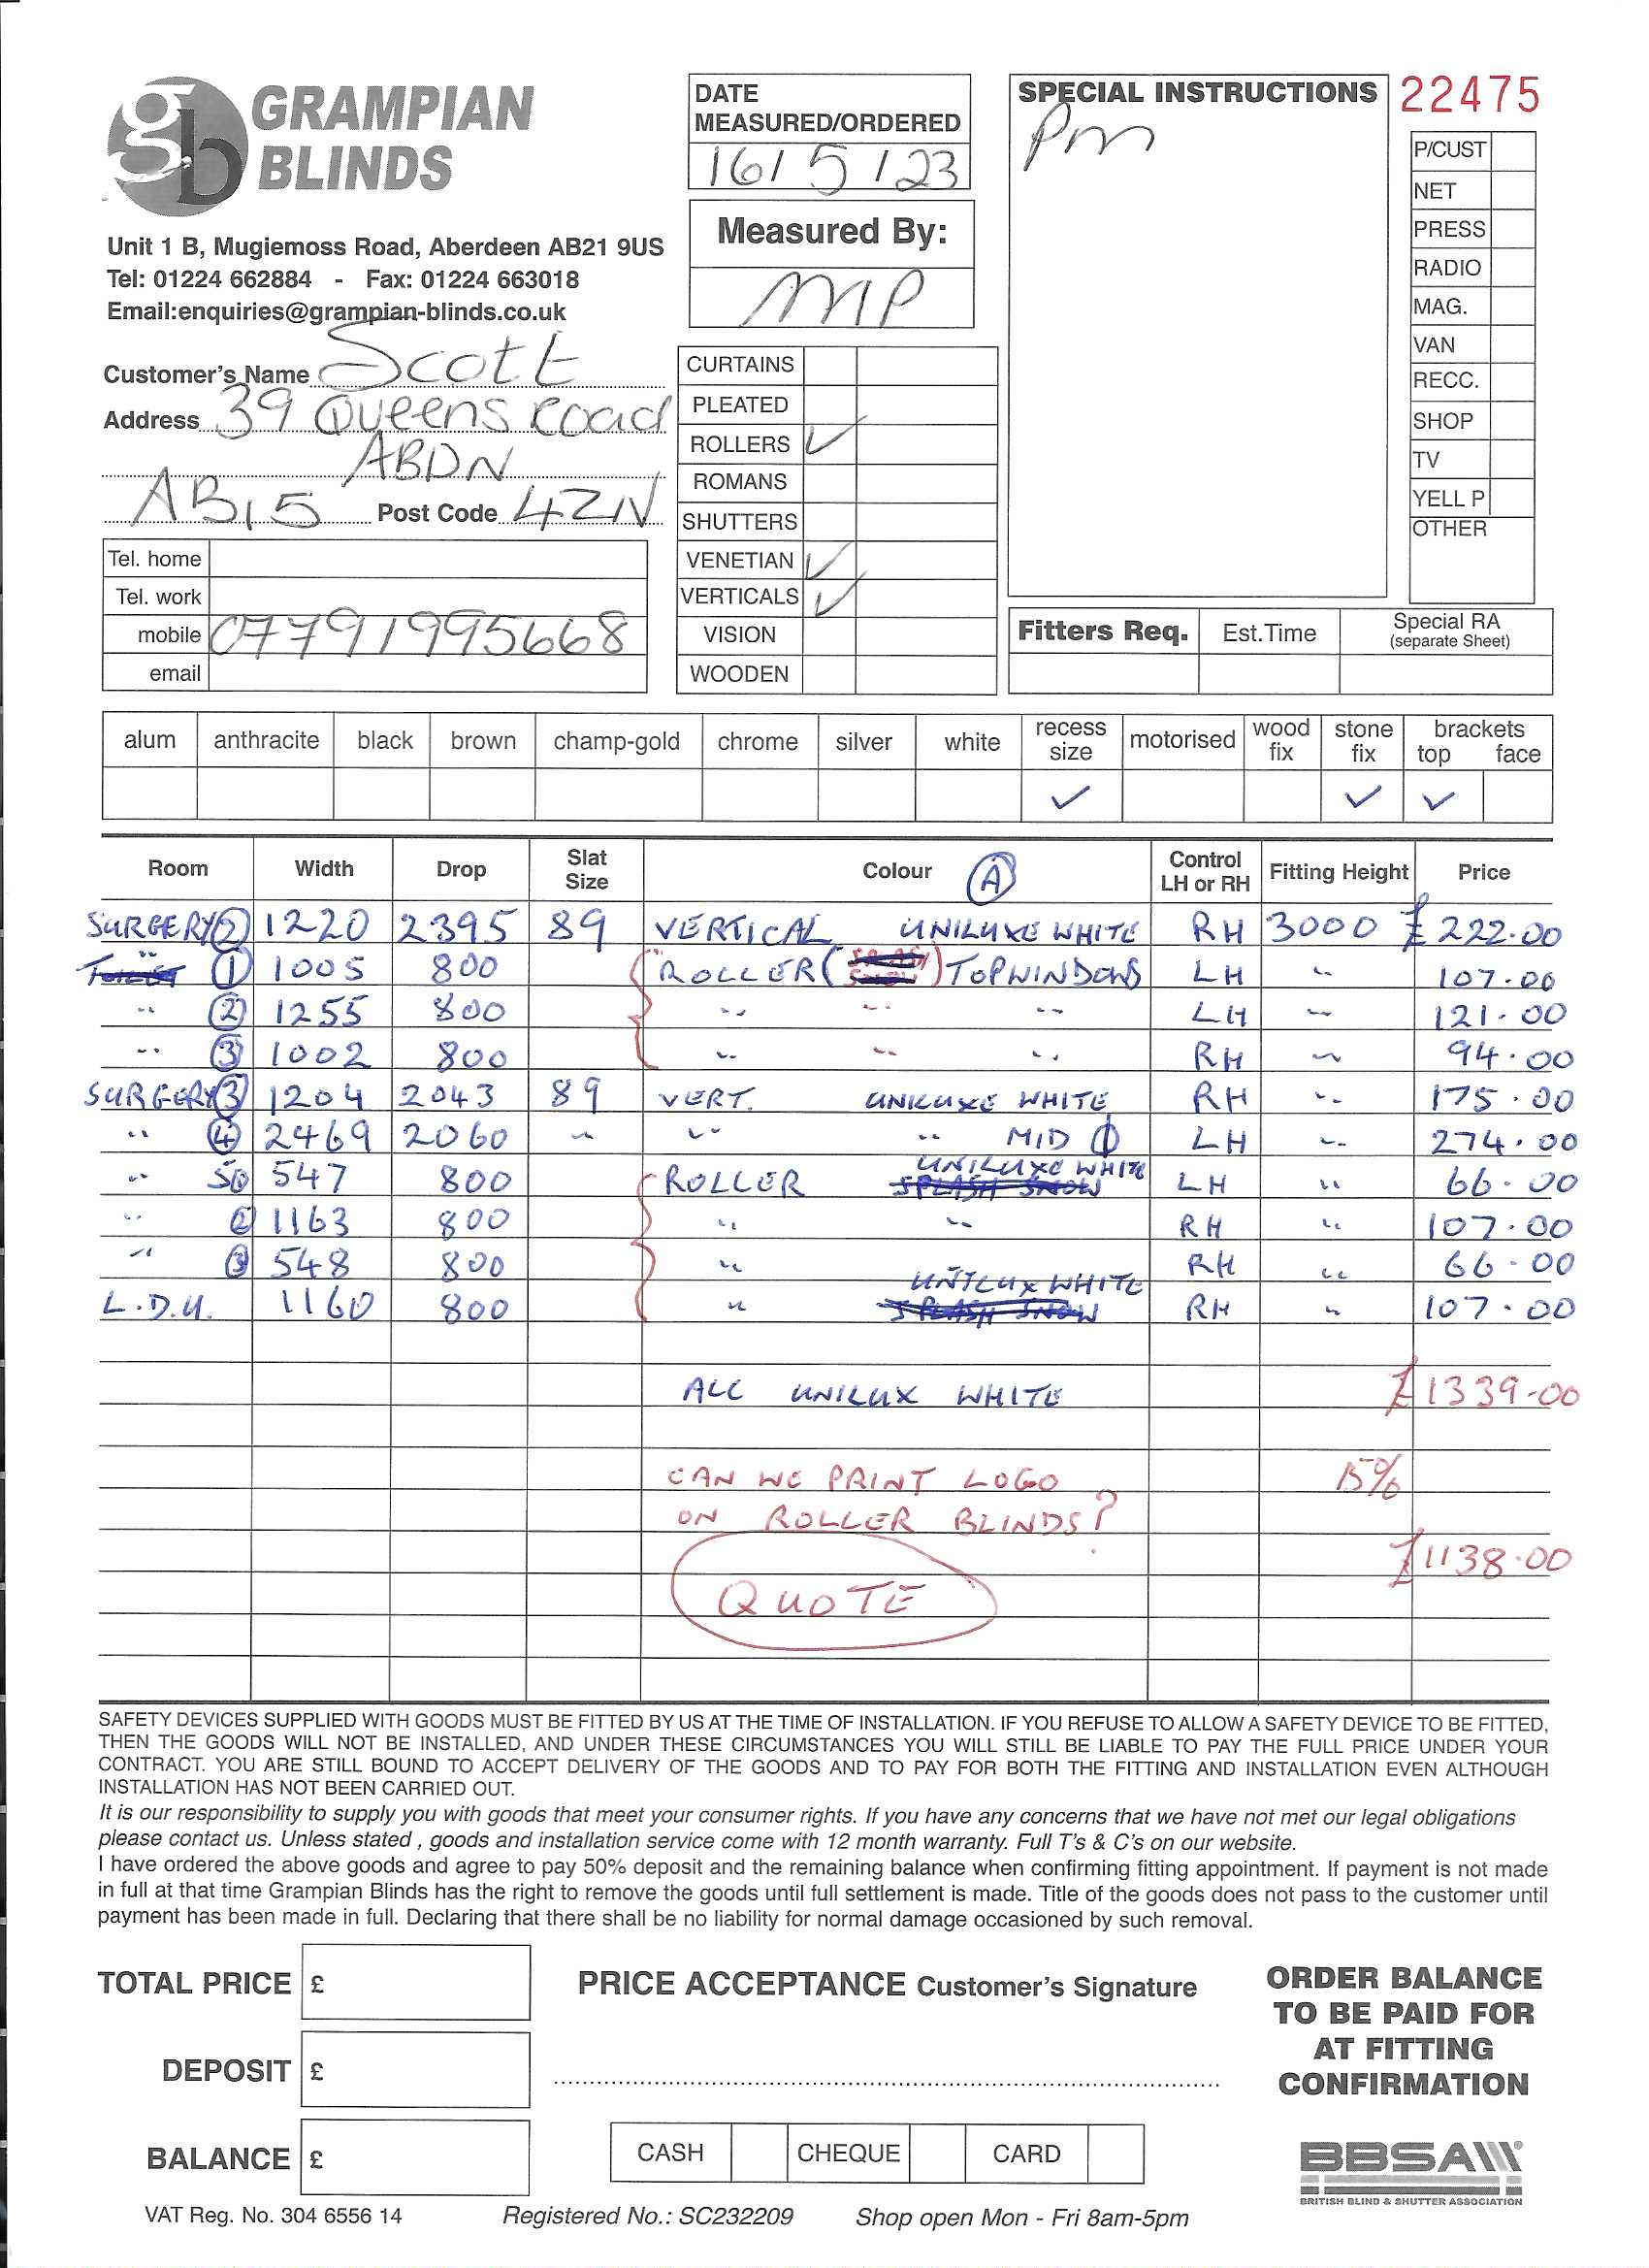 GRAMPIAN
BLINDS
Unit 1 B, Mugiemoss Road, Aberdeen AB21 9US
Tel: 01224 662884 - Fax: 01224 663018
Email:enquiries@grampian-blinds.co.uk
Customer's Name Scott
Address 39 Queens Road
ABDN
AB15 Post Code 4ZN
Tel. home
Tel. work
mobile 07791995668
email
DATE
MEASURED/ORDERED
16/5/23
Measured By:
MP
CURTAINS
PLEATED
ROLLERS ✓
ROMANS
SHUTTERS
VENETIAN ✓
VERTICALS ✓
VISION
WOODEN
SPECIAL INSTRUCTIONS
Pm
22475
P/CUST
NET
PRESS
RADIO
MAG.
VAN
RECC.
SHOP
TV
YELL P
OTHER
Fitters Req. Est.Time Special RA
(separate Sheet)
alum anthracite black brown champ-gold chrome silver white recess size motorised wood fix stone fix brackets top face
✓ ✓ ✓
Room Width Drop Slat Size Colour A Control LH or RH Fitting Height Price
SURGERY 2 1220 2395 89 VERTICAL UNILUXE WHITE RH 3000 £222.00
" 1 1005 800 ROLLER ( ) TOP WINDOWS LH " 107.00
" 2 1255 800 " " " LH " 121.00
" 3 1002 800 " " " RH " 94.00
SURGERY 3 1204 2043 89 VERT. UNILUXE WHITE RH " 175.00
" 4 2469 2060 " " " MID LH " 274.00
" 5 1 547 800 ROLLER UNILUXE WHITE SPLASH SNOW LH " 66.00
" 2 1163 800 " " RH " 107.00
" 3 548 800 " RH " 66.00
L.D.U. 1160 800 " UNILUX WHITE SPLASH SNOW RH " 107.00
ALL UNILUX WHITE £1339-00
CAN WE PRINT LOGO 15%
ON ROLLER BLINDS?
£1138.00
QUOTE
SAFETY DEVICES SUPPLIED WITH GOODS MUST BE FITTED BY US AT THE TIME OF INSTALLATION. IF YOU REFUSE TO ALLOW A SAFETY DEVICE TO BE FITTED,
THEN THE GOODS WILL NOT BE INSTALLED, AND UNDER THESE CIRCUMSTANCES YOU WILL STILL BE LIABLE TO PAY THE FULL PRICE UNDER YOUR
CONTRACT. YOU ARE STILL BOUND TO ACCEPT DELIVERY OF THE GOODS AND TO PAY FOR BOTH THE FITTING AND INSTALLATION EVEN ALTHOUGH
INSTALLATION HAS NOT BEEN CARRIED OUT.
It is our responsibility to supply you with goods that meet your consumer rights. If you have any concerns that we have not met our legal obligations
please contact us. Unless stated , goods and installation service come with 12 month warranty. Full T's & C's on our website.
I have ordered the above goods and agree to pay 50% deposit and the remaining balance when confirming fitting appointment. If payment is not made
in full at that time Grampian Blinds has the right to remove the goods until full settlement is made. Title of the goods does not pass to the customer until
payment has been made in full. Declaring that there shall be no liability for normal damage occasioned by such removal.
TOTAL PRICE £
DEPOSIT £
BALANCE £
PRICE ACCEPTANCE Customer's Signature
CASH CHEQUE CARD
ORDER BALANCE
TO BE PAID FOR
AT FITTING
CONFIRMATION
BBSA
BRITISH BLIND & SHUTTER ASSOCIATION
VAT Reg. No. 304 6556 14 Registered No.: SC232209 Shop open Mon - Fri 8am-5pm